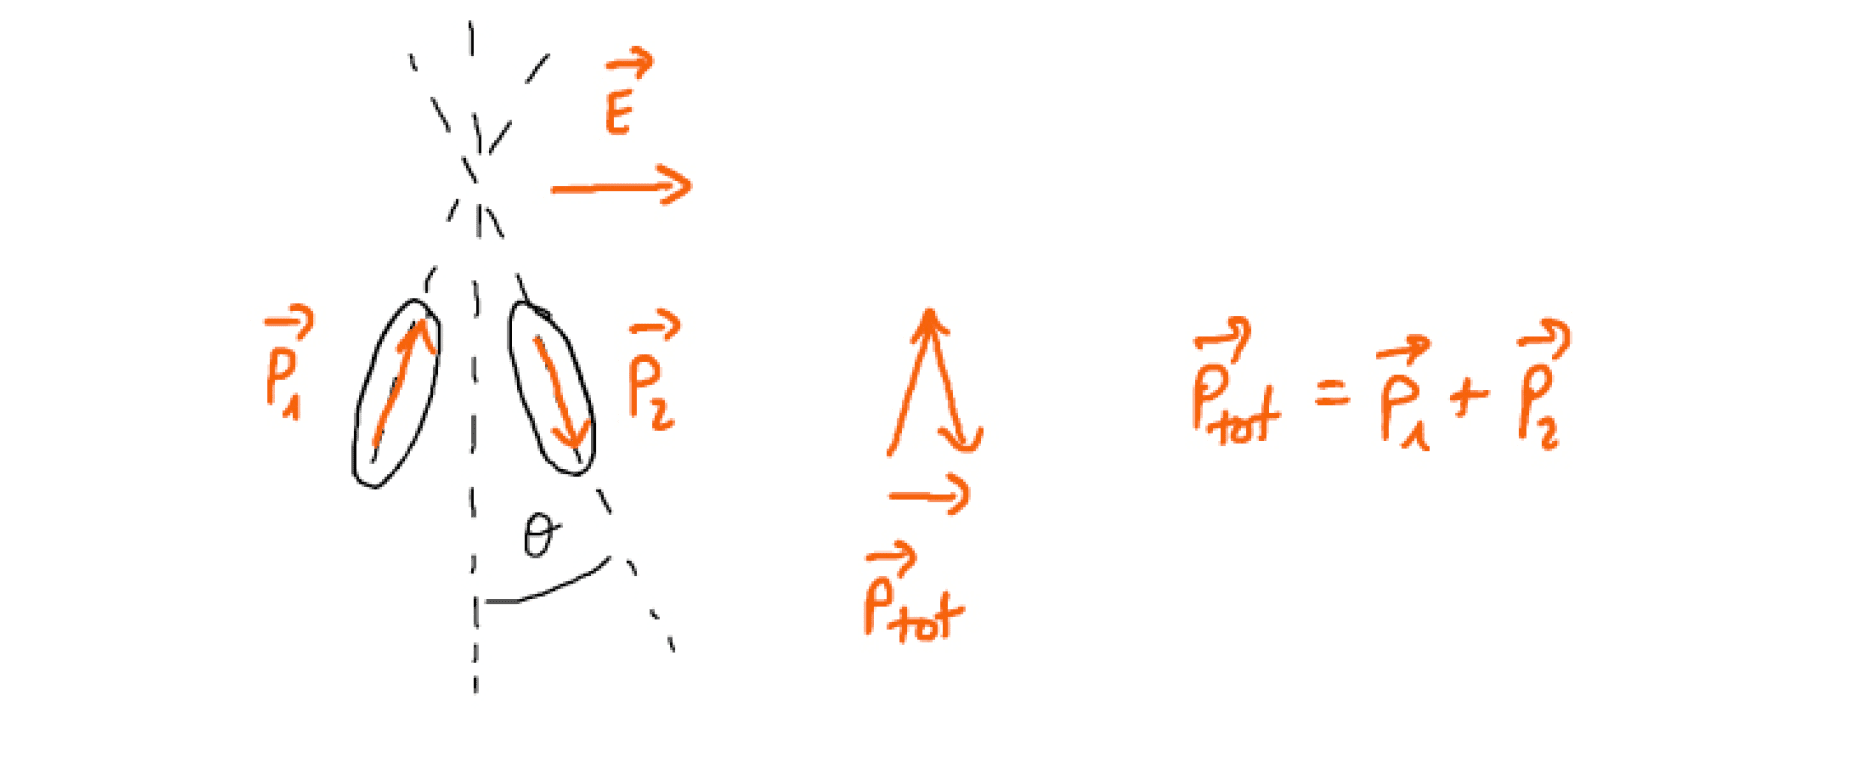 E⃗
P⃗₁
P⃗₂
θ
P⃗tot
P⃗tot = P⃗₁ + P⃗₂